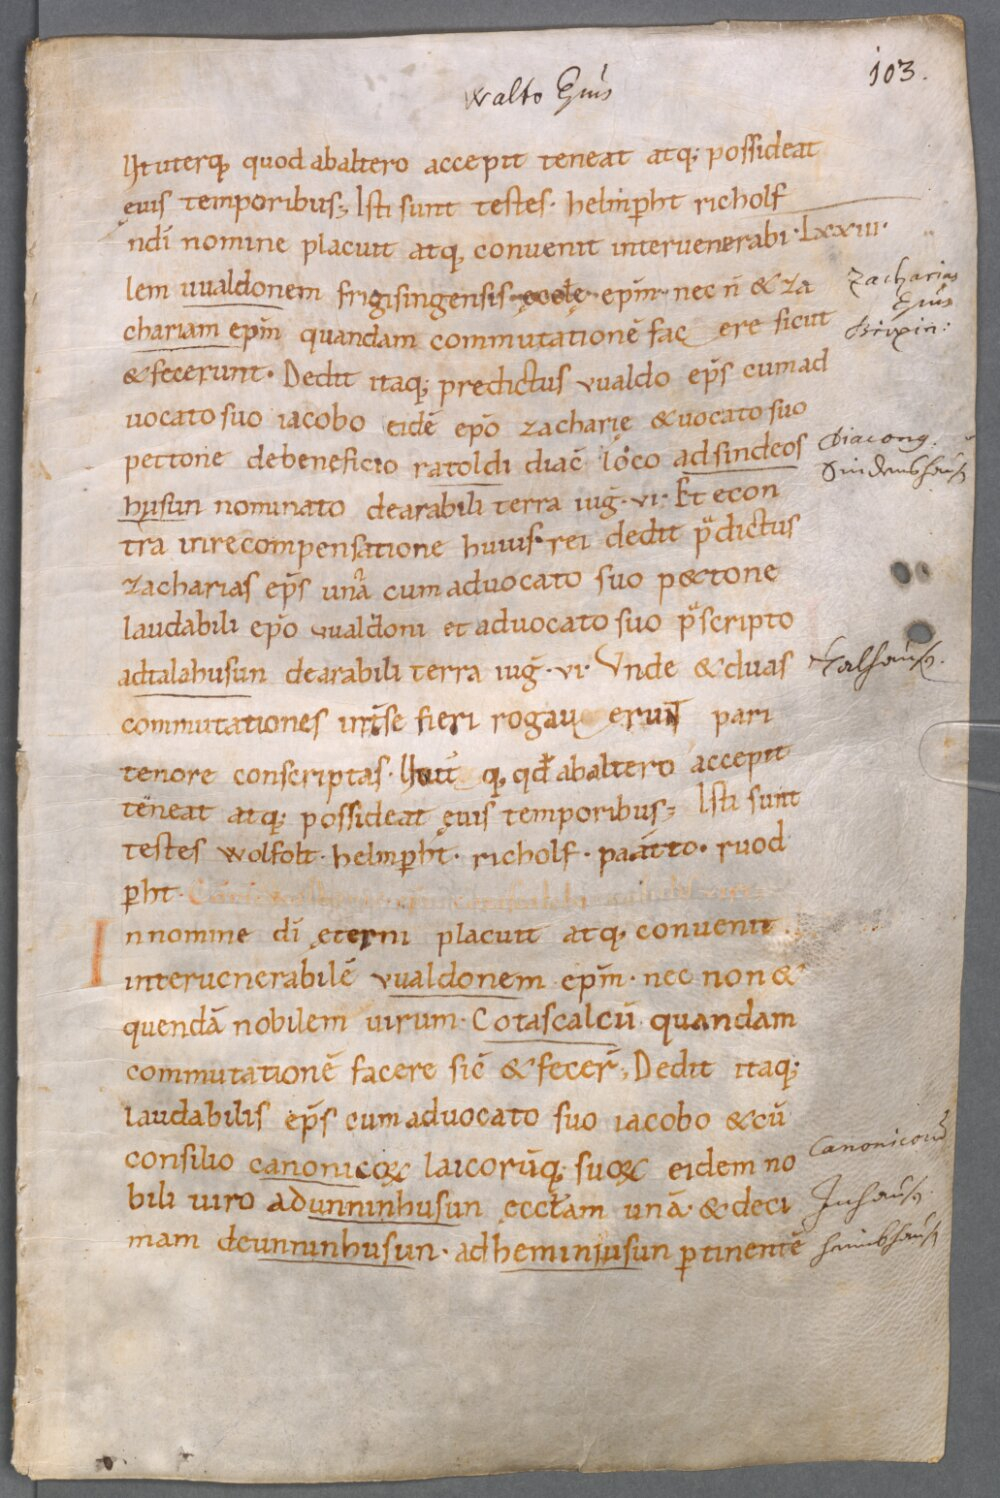 103.
Walto Ep̃us
Ut uterq; quod abaltero accepit teneat atq; possideat
ęuis temporibus; Isti sunt testes· helmpħt richolf
ndī nomine placuit atq; convenit interuenerabi· Lxxiii·
lem uualdonem frigisingensis epīm· nec n̄ & za
Zacharias
Ep̃us
Brixin:
chariam epīm quandam commutationē fac ere sicut
& fecerunt· Dedit itaq; predictus vualdo ep̄s cumad
uocato suo iacobo eidē ep̄o zacharię &uocato suo
pettone debeneficio ratoldi diac̄ loco adsindeos
Diacong.
Sindenshaus̃
husun nominato dearabili terra iug̃· vi· Et econ
tra inrecompensatione huius rei dedit p̄dictus
zacharias ep̄s unā cum advocato suo pettone
laudabili ep̄o vualdoni et advocato suo p̄scripto
adtalahusun dearabili terra iug̃· vi· Vnde & duas
Talhaus̃.
commutationes int̄se fieri rogau erunt pari
tenore conscriptas· Ut q; qđ abaltero accepit
teneat atq; possideat ęuis temporibus; Isti sunt
testes wolfolt· helmpħt· richolf· paatto· ruod
pħt·
I
nnomine dī ęterni placuit atq; convenit
interuenerabilē vualdonem epīm· nec non &
quendā nobilem uirum· Cotascalcū quandam
commutationē facere sic̄ & fecer̄; Dedit itaq;
laudabilis ep̄s cum advocato suo iacobo & cū
consilio canonicoꝝ laicorūq; suoꝝ eidem no
Canonicorū
bili uiro adunninhusun ęccłam unā· & deci
Inhaus̃.
mam deunninhusun· adheminhusun ꝑtinentē
heimbhaus̃